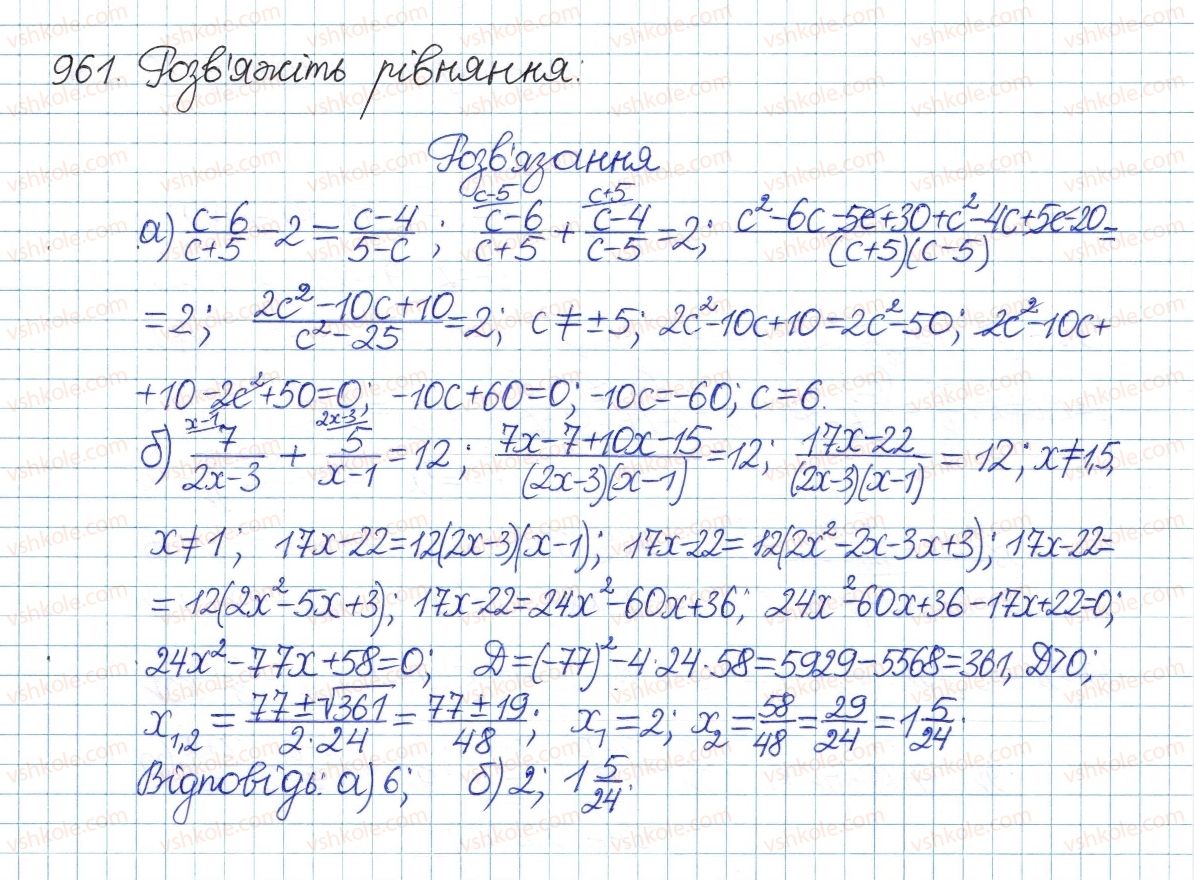 961. Розв'яжіть рівняння:
Розв'язання
а) (c-6)/(c+5) - 2 = (c-4)/(5-c); (c-5) (c-6)/(c+5) + (c+5) (c-4)/(c-5) = 2; (c²-6c-5c+30+c²-4c+5c-20)/((c+5)(c-5)) =
= 2; (2c²-10c+10)/(c²-25) = 2; c ≠ ±5; 2c²-10c+10=2c²-50; 2c²-10c+
+10-2c²+50=0; -10c+60=0; -10c=-60; c=6.
б) (x-1) 7/(2x-3) + (2x-3) 5/(x-1) = 12; (7x-7+10x-15)/((2x-3)(x-1)) = 12; (17x-22)/((2x-3)(x-1)) = 12; x≠1,5,
x≠1; 17x-22=12(2x-3)(x-1); 17x-22=12(2x²-2x-3x+3); 17x-22=
=12(2x²-5x+3); 17x-22=24x²-60x+36; 24x²-60x+36-17x+22=0;
24x²-77x+58=0; D=(-77)²-4·24·58=5929-5568=361, D>0;
x₁,₂ = (77±√361)/(2·24) = (77±19)/48; x₁=2; x₂=58/48=29/24=1 5/24.
Відповідь: а) 6; б) 2; 1 5/24.
vshkole.com